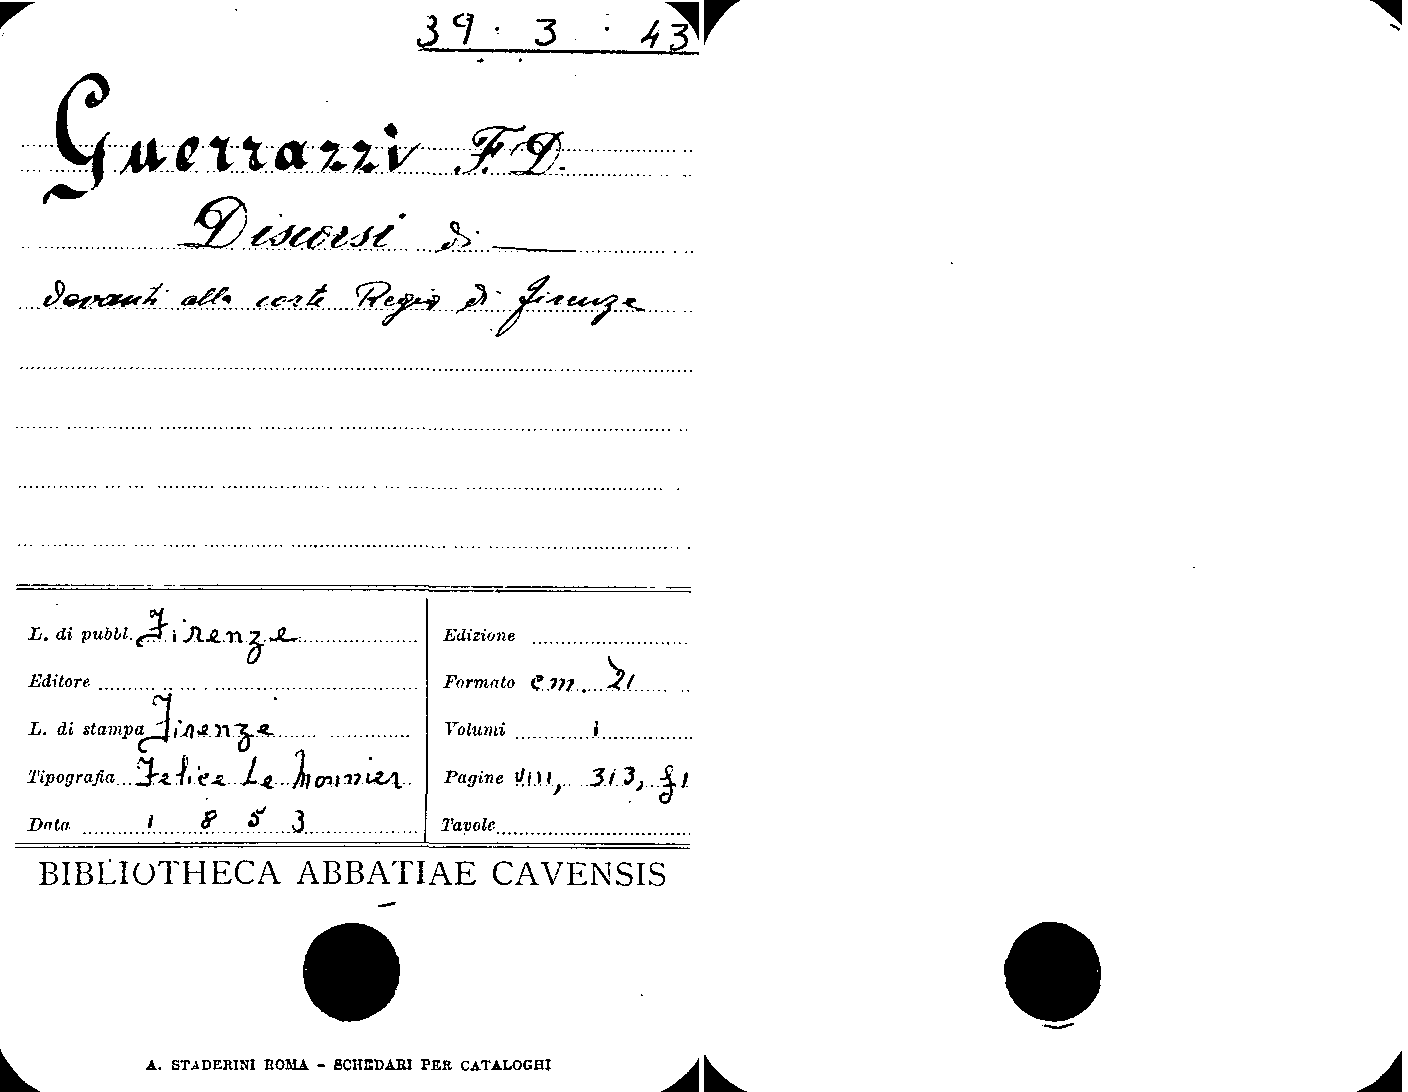 39 · 3 · 43
Guerrazzi F. D.
Discorsi di ———
davanti alla corte Regia di Firenze
L. di pubbl. Firenze
Editore
L. di stampa Firenze
Tipografia Felice Le Monnier
Data 1853
Edizione
Formato cm. 21
Volumi 1
Pagine VIII, 313, f 1
Tavole
BIBLIOTHECA ABBATIAE CAVENSIS
A. STADERINI ROMA - SCHEDARI PER CATALOGHI